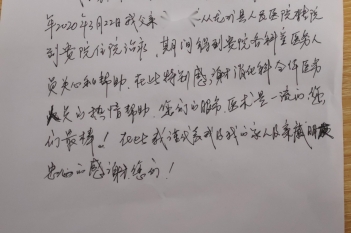 年2020年3月22日我父亲 从龙州县人民医院转院
到贵院住院治疗，期间得到贵院各科室医务人
员关心和帮助，在此特别感谢消化科全体医务
人员的热情帮助，您们的服务，医术是一流的，您
们最棒！在此我谨代表我及我的家人及亲戚朋友
忠心的感谢您们！